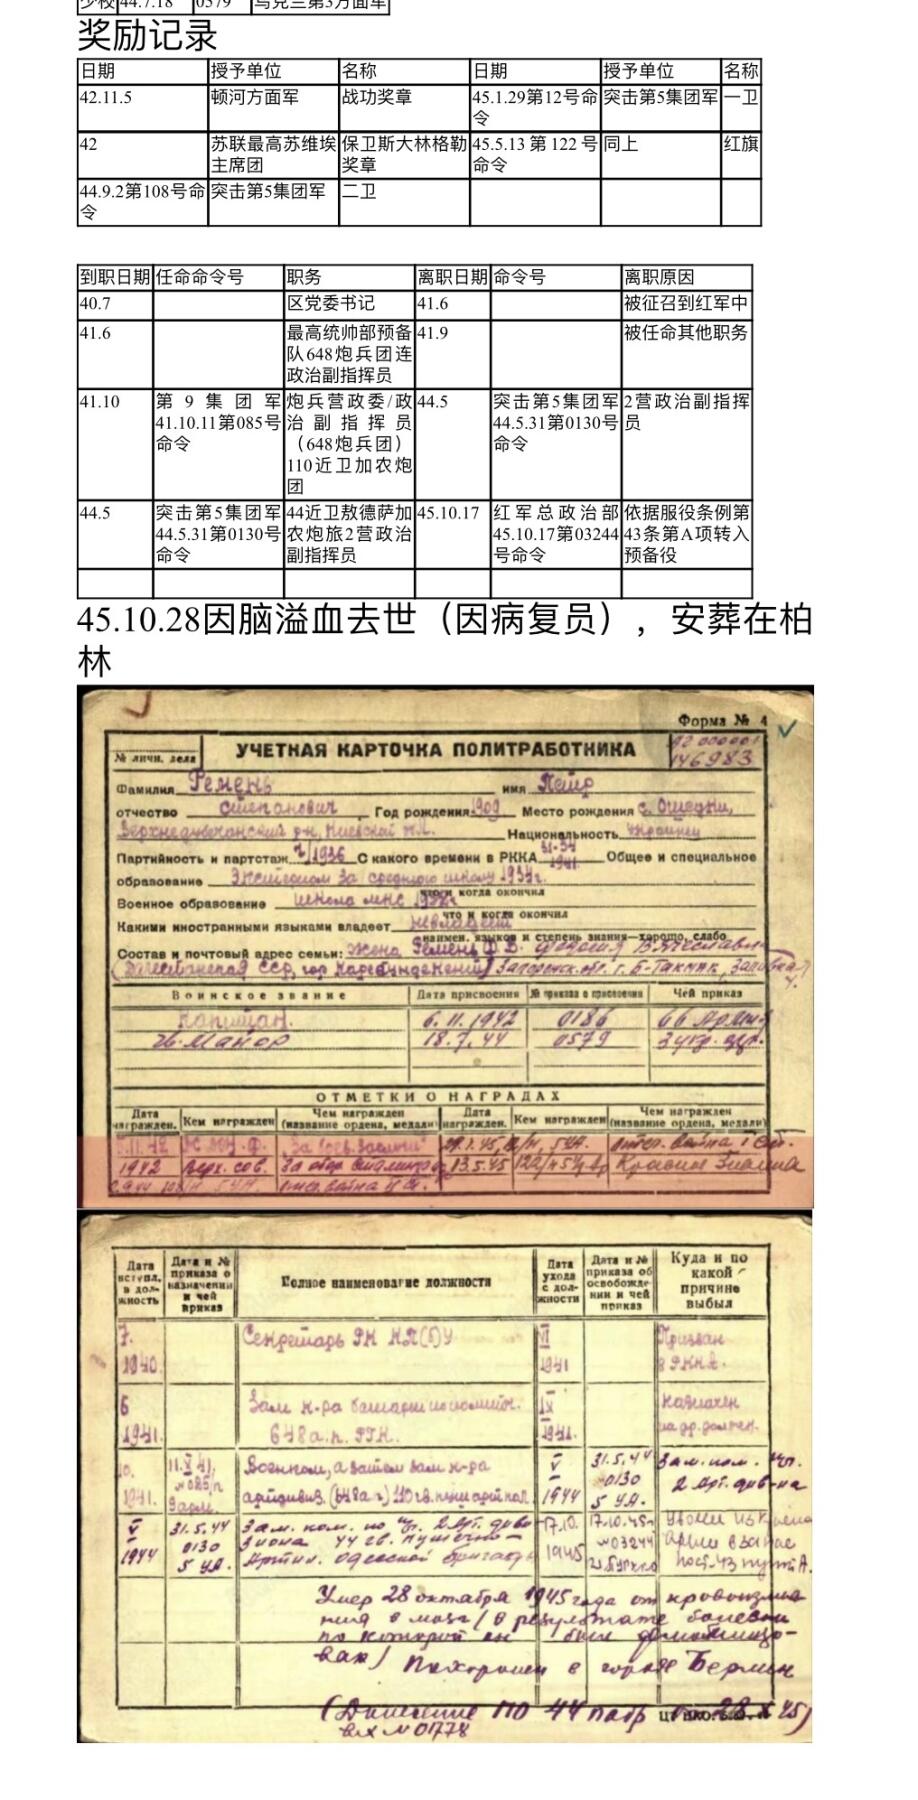 少校 44.7.18 0579 乌克兰第3方面军
奖励记录
日期 授予单位 名称 日期 授予单位 名称
42.11.5 顿河方面军 战功奖章 45.1.29第12号命令 突击第5集团军 一卫
42 苏联最高苏维埃主席团 保卫斯大林格勒奖章 45.5.13 第 122 号命令 同上 红旗
44.9.2第108号命令 突击第5集团军 二卫
到职日期 任命命令号 职务 离职日期 命令号 离职原因
40.7 区党委书记 41.6 被征召到红军中
41.6 最高统帅部预备队648炮兵团连政治副指挥员 41.9 被任命其他职务
41.10 第9集团军41.10.11第085号命令 炮兵营政委/政治副指挥员（648炮兵团）110近卫加农炮团 44.5 突击第5集团军44.5.31第0130号命令 2营政治副指挥员
44.5 突击第5集团军44.5.31第0130号命令 44近卫敖德萨加农炮旅2营政治副指挥员 45.10.17 红军总政治部45.10.17第03244号命令 依据服役条例第43条第A项转入预备役
45.10.28因脑溢血去世（因病复员），安葬在柏
林
Форма № 4
№ личн. дела УЧЕТНАЯ КАРТОЧКА ПОЛИТРАБОТНИКА 146983
Фамилия Ремень имя Петр
отчество Степанович Год рождения 1909 Место рождения с.
Киевской Национальность
Партийность и партстаж 1936 С какого времени в РККА 1941 Общее и специальное
образование за среднюю школу 1934г.
что и когда окончил
Военное образование школа мнс
что и когда окончил
Какими иностранными языками владеет не владеет
наимен. языков и степень знания—хорошо, слабо
Состав и почтовый адрес семьи: жена Ремень Ф. В.
Воинское звание Дата присвоения № приказа о присвоении Чей приказ
Капитан. 6.11.1942 0186 66 Армии
Майор 18.7.44 0579 3 укр.
ОТМЕТКИ О НАГРАДАХ
Дата награжден. Кем награжден Чем награжден (название ордена, медали) Дата награжден. Кем награжден Чем награжден (название ордена, медали)
За боев. заслуги отеч. война I ст.
1942 Верх. сов. За обор. Сталингр. 13.5.45 Красное Знамя
отеч. война II ст.
Дата вступл. в должность Дата и № приказа о назначении и чей приказ Полное наименование должности Дата ухода с должности Дата и № приказа об освобождении и чей приказ Куда и по какой причине выбыл
7. 1940. Секретарь РК КП(б)У VI 1941 Призван в РККА.
6 1941. Зам к-ра батареи по политч. 648 а.п. РГК. IX 1941. назначен на др. должн.
10. 1941. Военком, а затем зам к-ра артдивиз. (648 ап) 110 гв. V 1944 31.5.44 0130 5 УА. Зам. ком. 2 Арт. див-на
V 1944 31.5.44 0130 5 УА Зам. ком. по 2 Арт. дивизиона 44 гв. пушечно- Артил. Одесской бригады 17.10. 1945 17.10.45г №03244 Армии в запас
Умер 28 октября 1945 года от кровоизлия
ния в мозг (в результате болезни
по которой он был демобилизо-
ван) Похоронен в городе Берлин
(Донесение ПО 44 28.X.45)
вх №01778